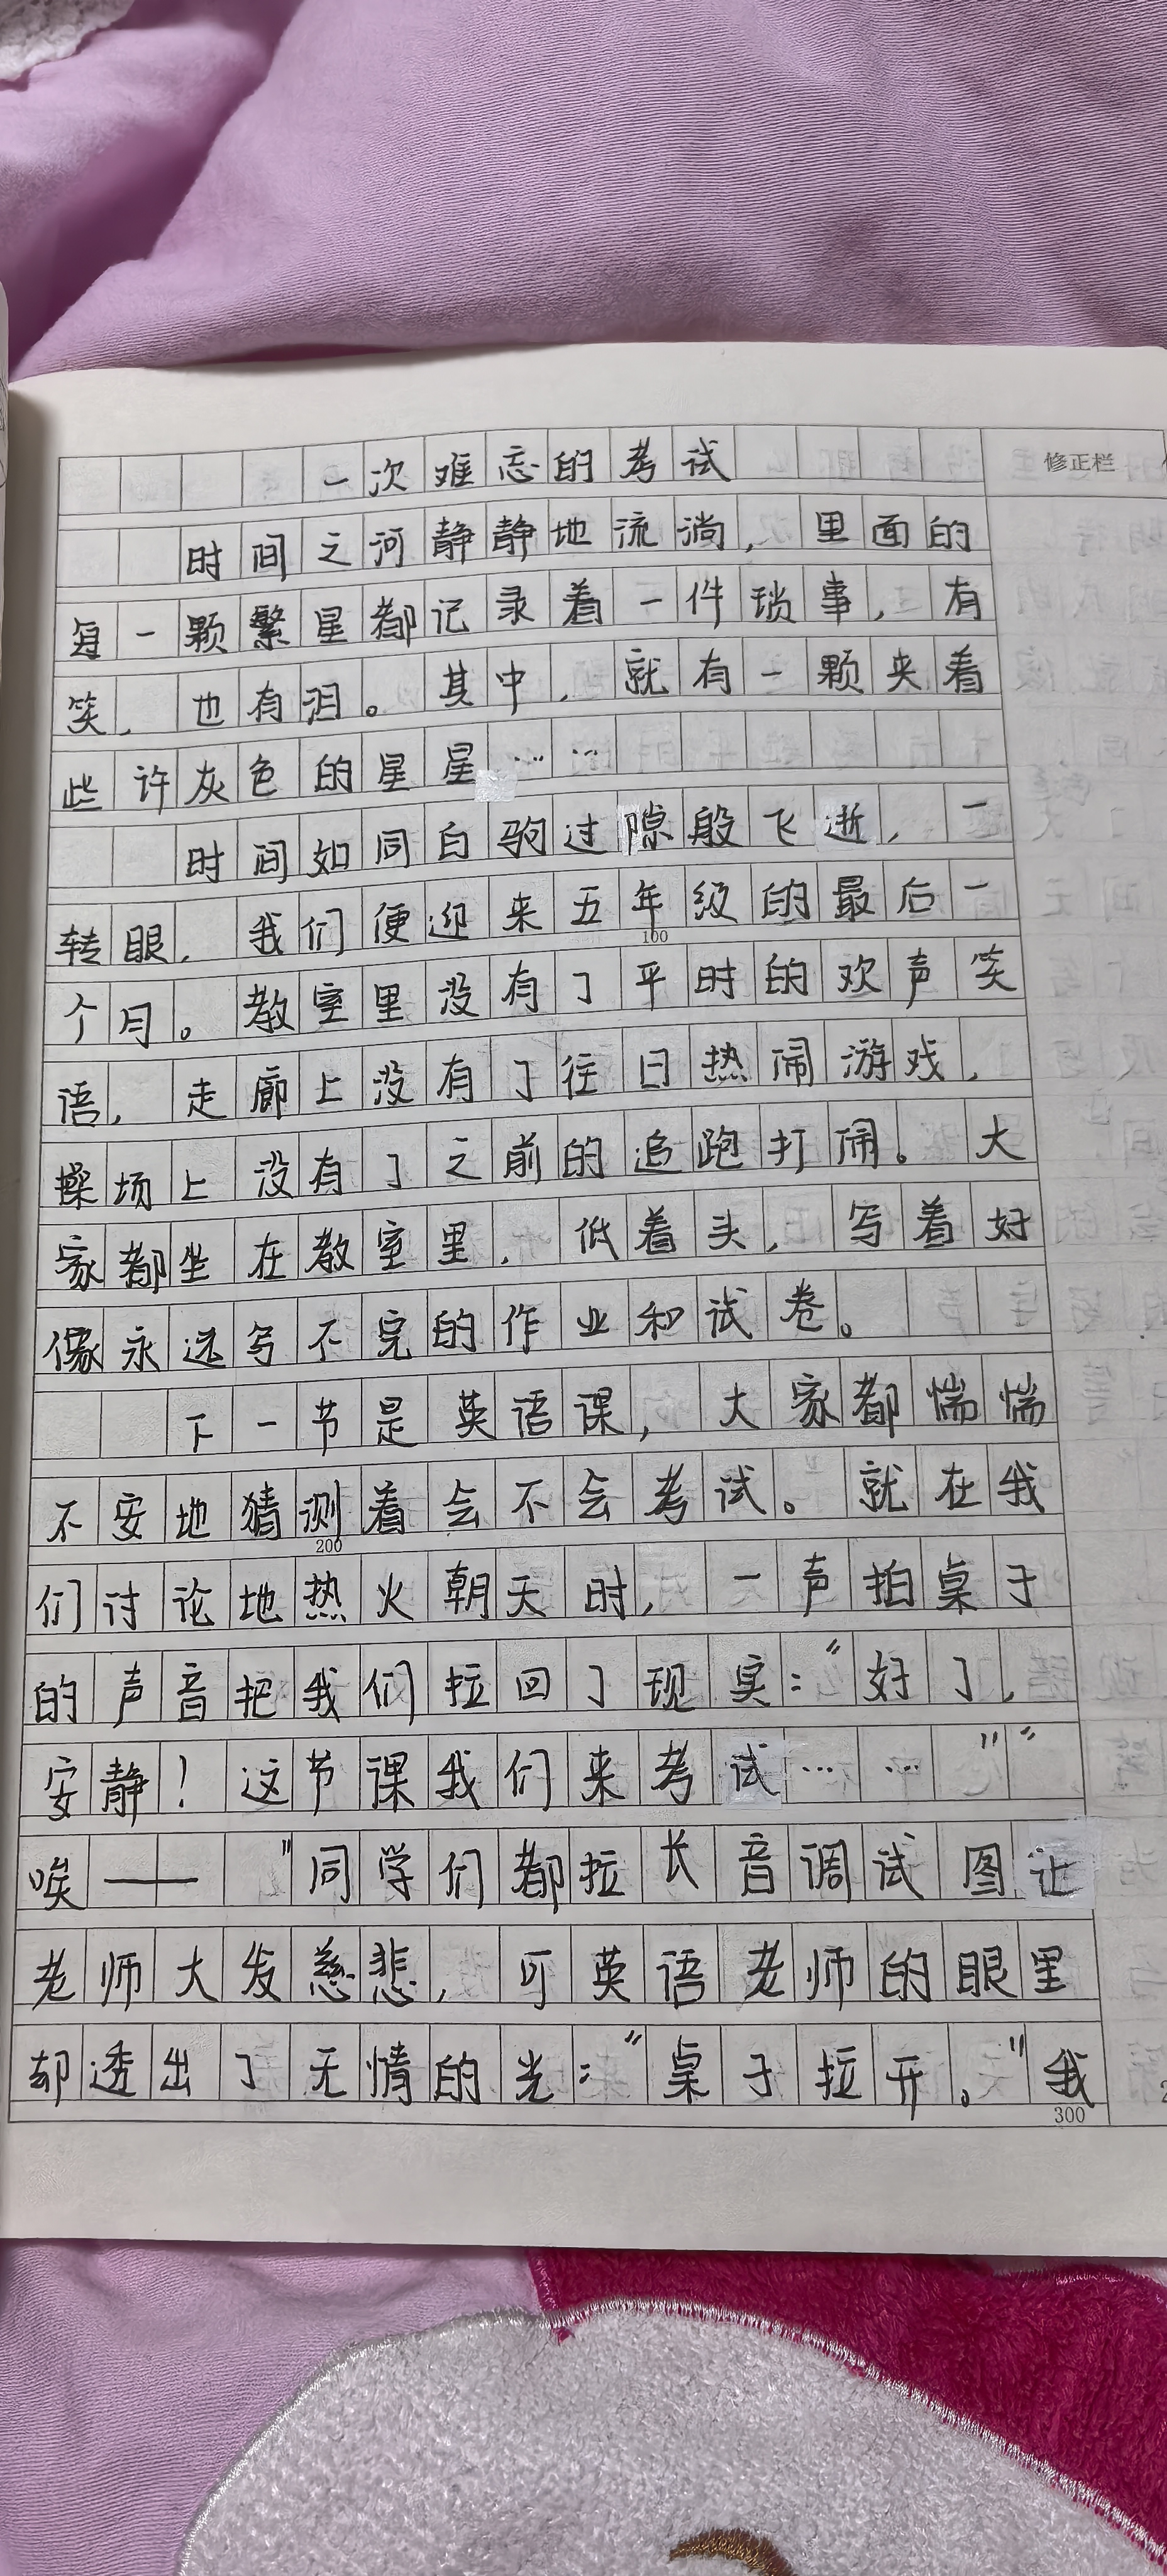 一次难忘的考试
修正栏
时间之河静静地流淌，里面的
每一颗繁星都记录着一件琐事，有
笑，也有泪。其中，就有一颗夹着
些许灰色的星星……
时间如同白驹过隙般飞逝，一
转眼，我们便迎来五年级的最后一
100
个月。教室里没有了平时的欢声笑
语，走廊上没有了往日热闹游戏，
操场上没有了之前的追跑打闹。大
家都坐在教室里，低着头，写着好
像永远写不完的作业和试卷。
下一节是英语课，大家都惴惴
不安地猜测着会不会考试。就在我
200
们讨论地热火朝天时，一声拍桌子
的声音把我们拉回了现实：“好了，
安静！这节课我们来考试……”“
唉——”同学们都拉长音调试图让
老师大发慈悲，可英语老师的眼里
却透出了无情的光：“桌子拉开。”我
300